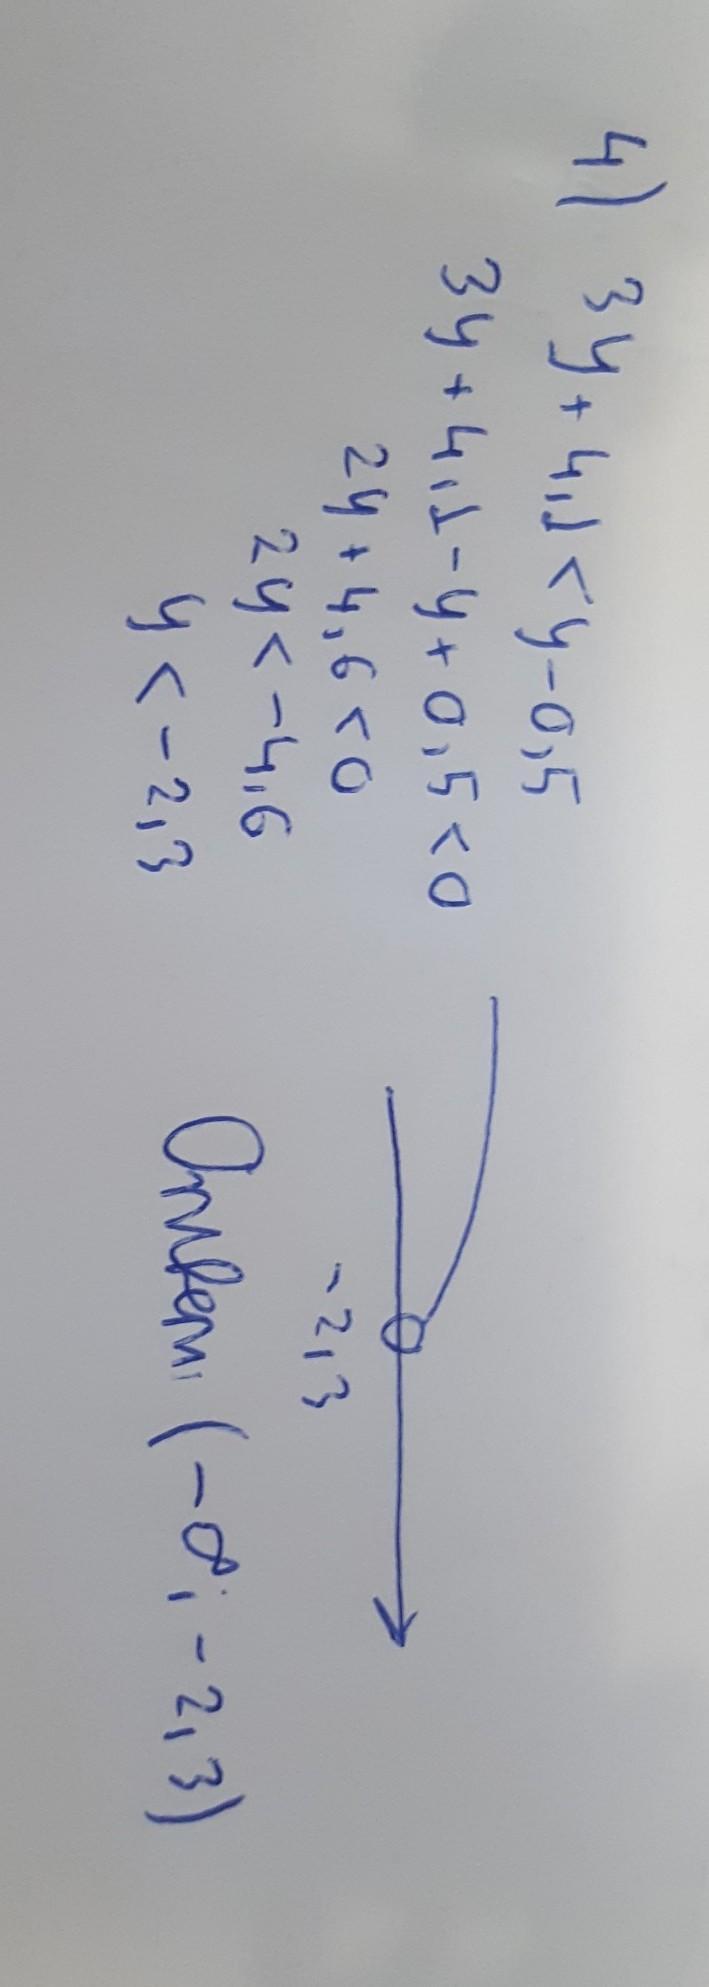 4) 3y + 4,1 < y - 0,5
3y + 4,1 - y + 0,5 < 0
2y + 4,6 < 0
2y < -4,6
y < -2,3
-2,3
Ответ (-∞; -2,3)